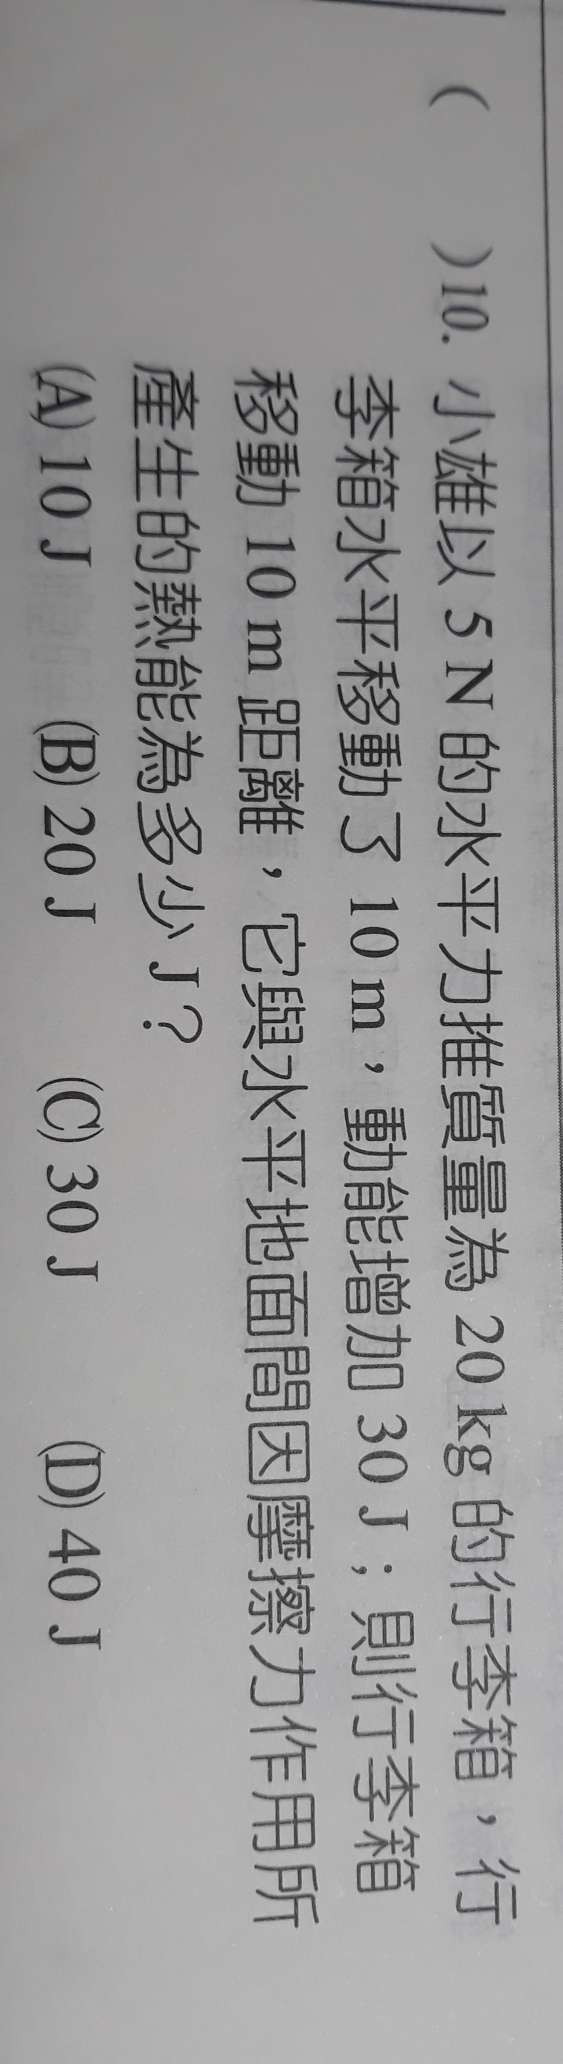 (　　)10. 小雄以 5 N 的水平力推質量為 20 kg 的行李箱，行
李箱水平移動了 10 m，動能增加 30 J；則行李箱
移動 10 m 距離，它與水平地面間因摩擦力作用所
產生的熱能為多少 J？
(A) 10 J　(B) 20 J　(C) 30 J　(D) 40 J